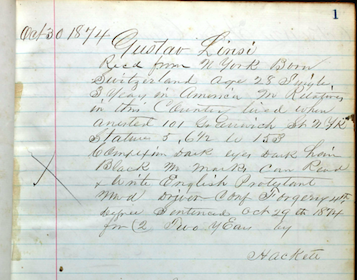 1
Oct 30 1874
Gustav Linsi
Recd from N York Born
Switzerland Age 28 Single
3 Years in America No Relatives
in this Country lived when
arrested 101 Greenwich St N.Y.
Stature 5, 6½ W 158
Complexion Dark eyes Dark hair
Black No marks Can Read
& Write English Protestant
Mod Conf Forgery 4th
Degree Sentenced Oct 29th 1874
for (2 Two Years by
Hackett